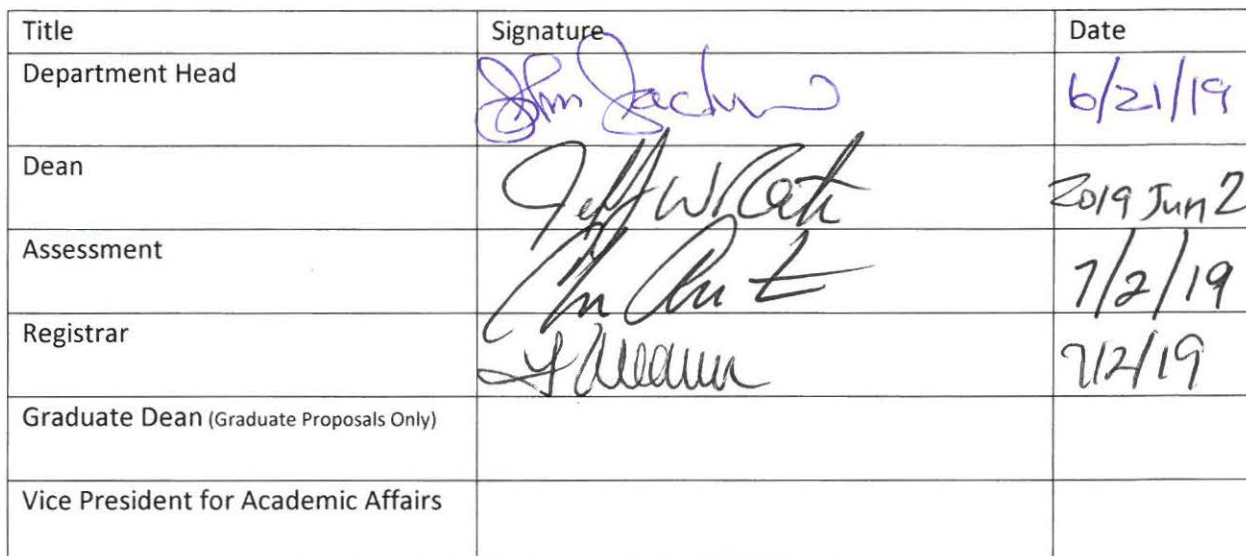 Title Signature Date
Department Head John Jackson 6/21/19
Dean Jeff W 2019 Jun 2
Assessment 7/2/19
Registrar 7/2/19
Graduate Dean (Graduate Proposals Only)
Vice President for Academic Affairs